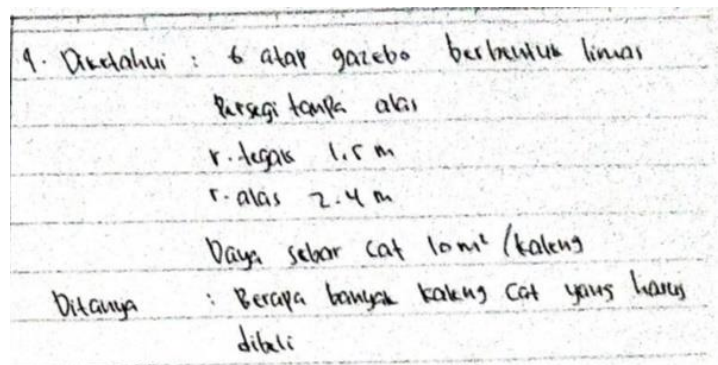 9. Diketahui : 6 atap gazebo berbentuk limas
Persegi tanpa alas
r. tegak 1.5 m
r. alas 2.4 m
Daya sebar cat 10 m² / kaleng
Ditanya : Berapa banyak kaleng cat yang harus
dibeli